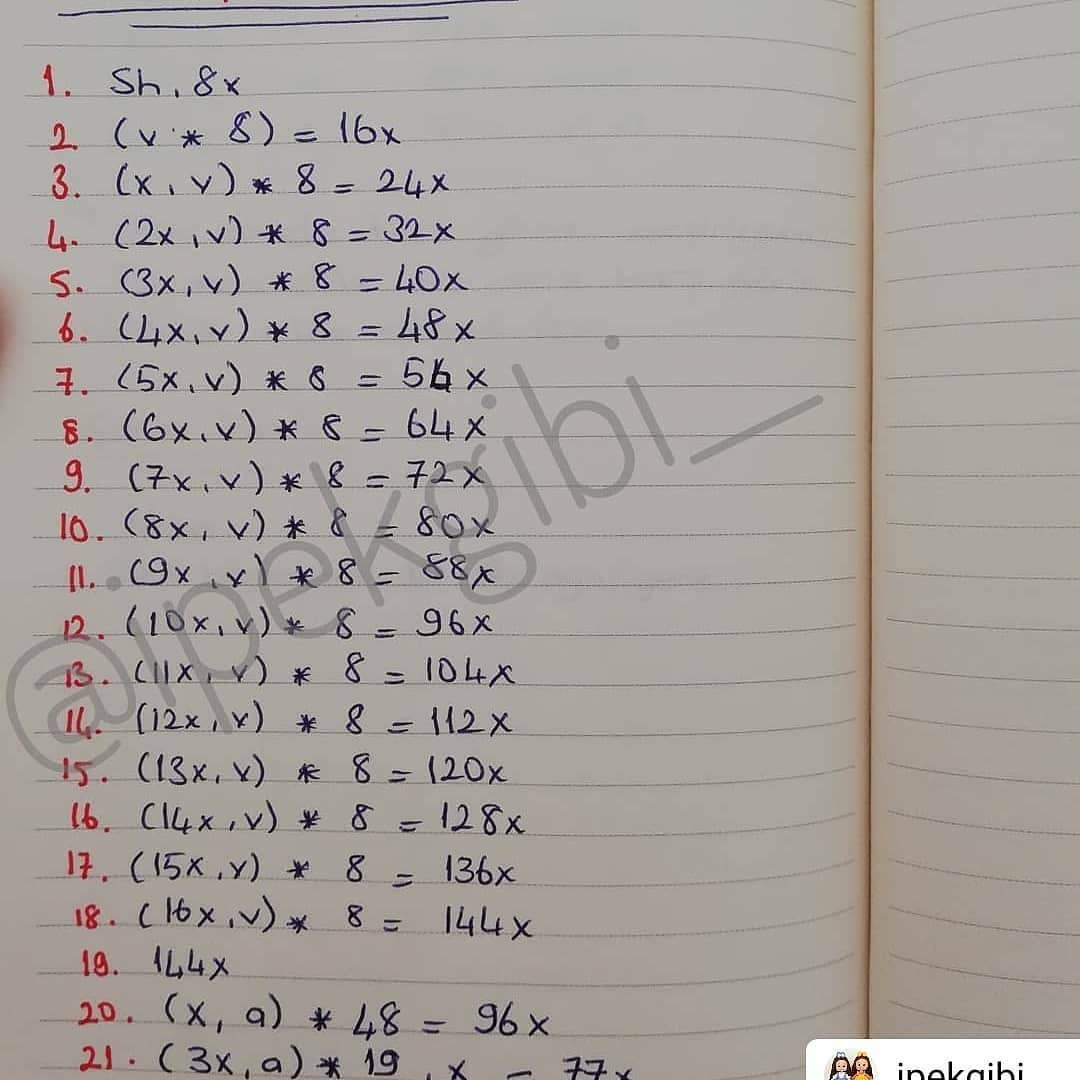 1. Sh, 8x
2. (v * 8) = 16x
3. (x, v) * 8 = 24x
4. (2x, v) * 8 = 32x
5. (3x, v) * 8 = 40x
6. (4x, v) * 8 = 48x
7. (5x, v) * 8 = 56x
8. (6x, v) * 8 = 64x
9. (7x, v) * 8 = 72x
10. (8x, v) * 8 = 80x
11. (9x, v) * 8 = 88x
12. (10x, v) * 8 = 96x
13. (11x, v) * 8 = 104x
14. (12x, v) * 8 = 112x
15. (13x, v) * 8 = 120x
16. (14x, v) * 8 = 128x
17. (15x, v) * 8 = 136x
18. (16x, v) * 8 = 144x
19. 144x
20. (x, a) * 48 = 96x
21. (3x, a) * 19, x = 77x
@ipekgibi_
ipekgibi